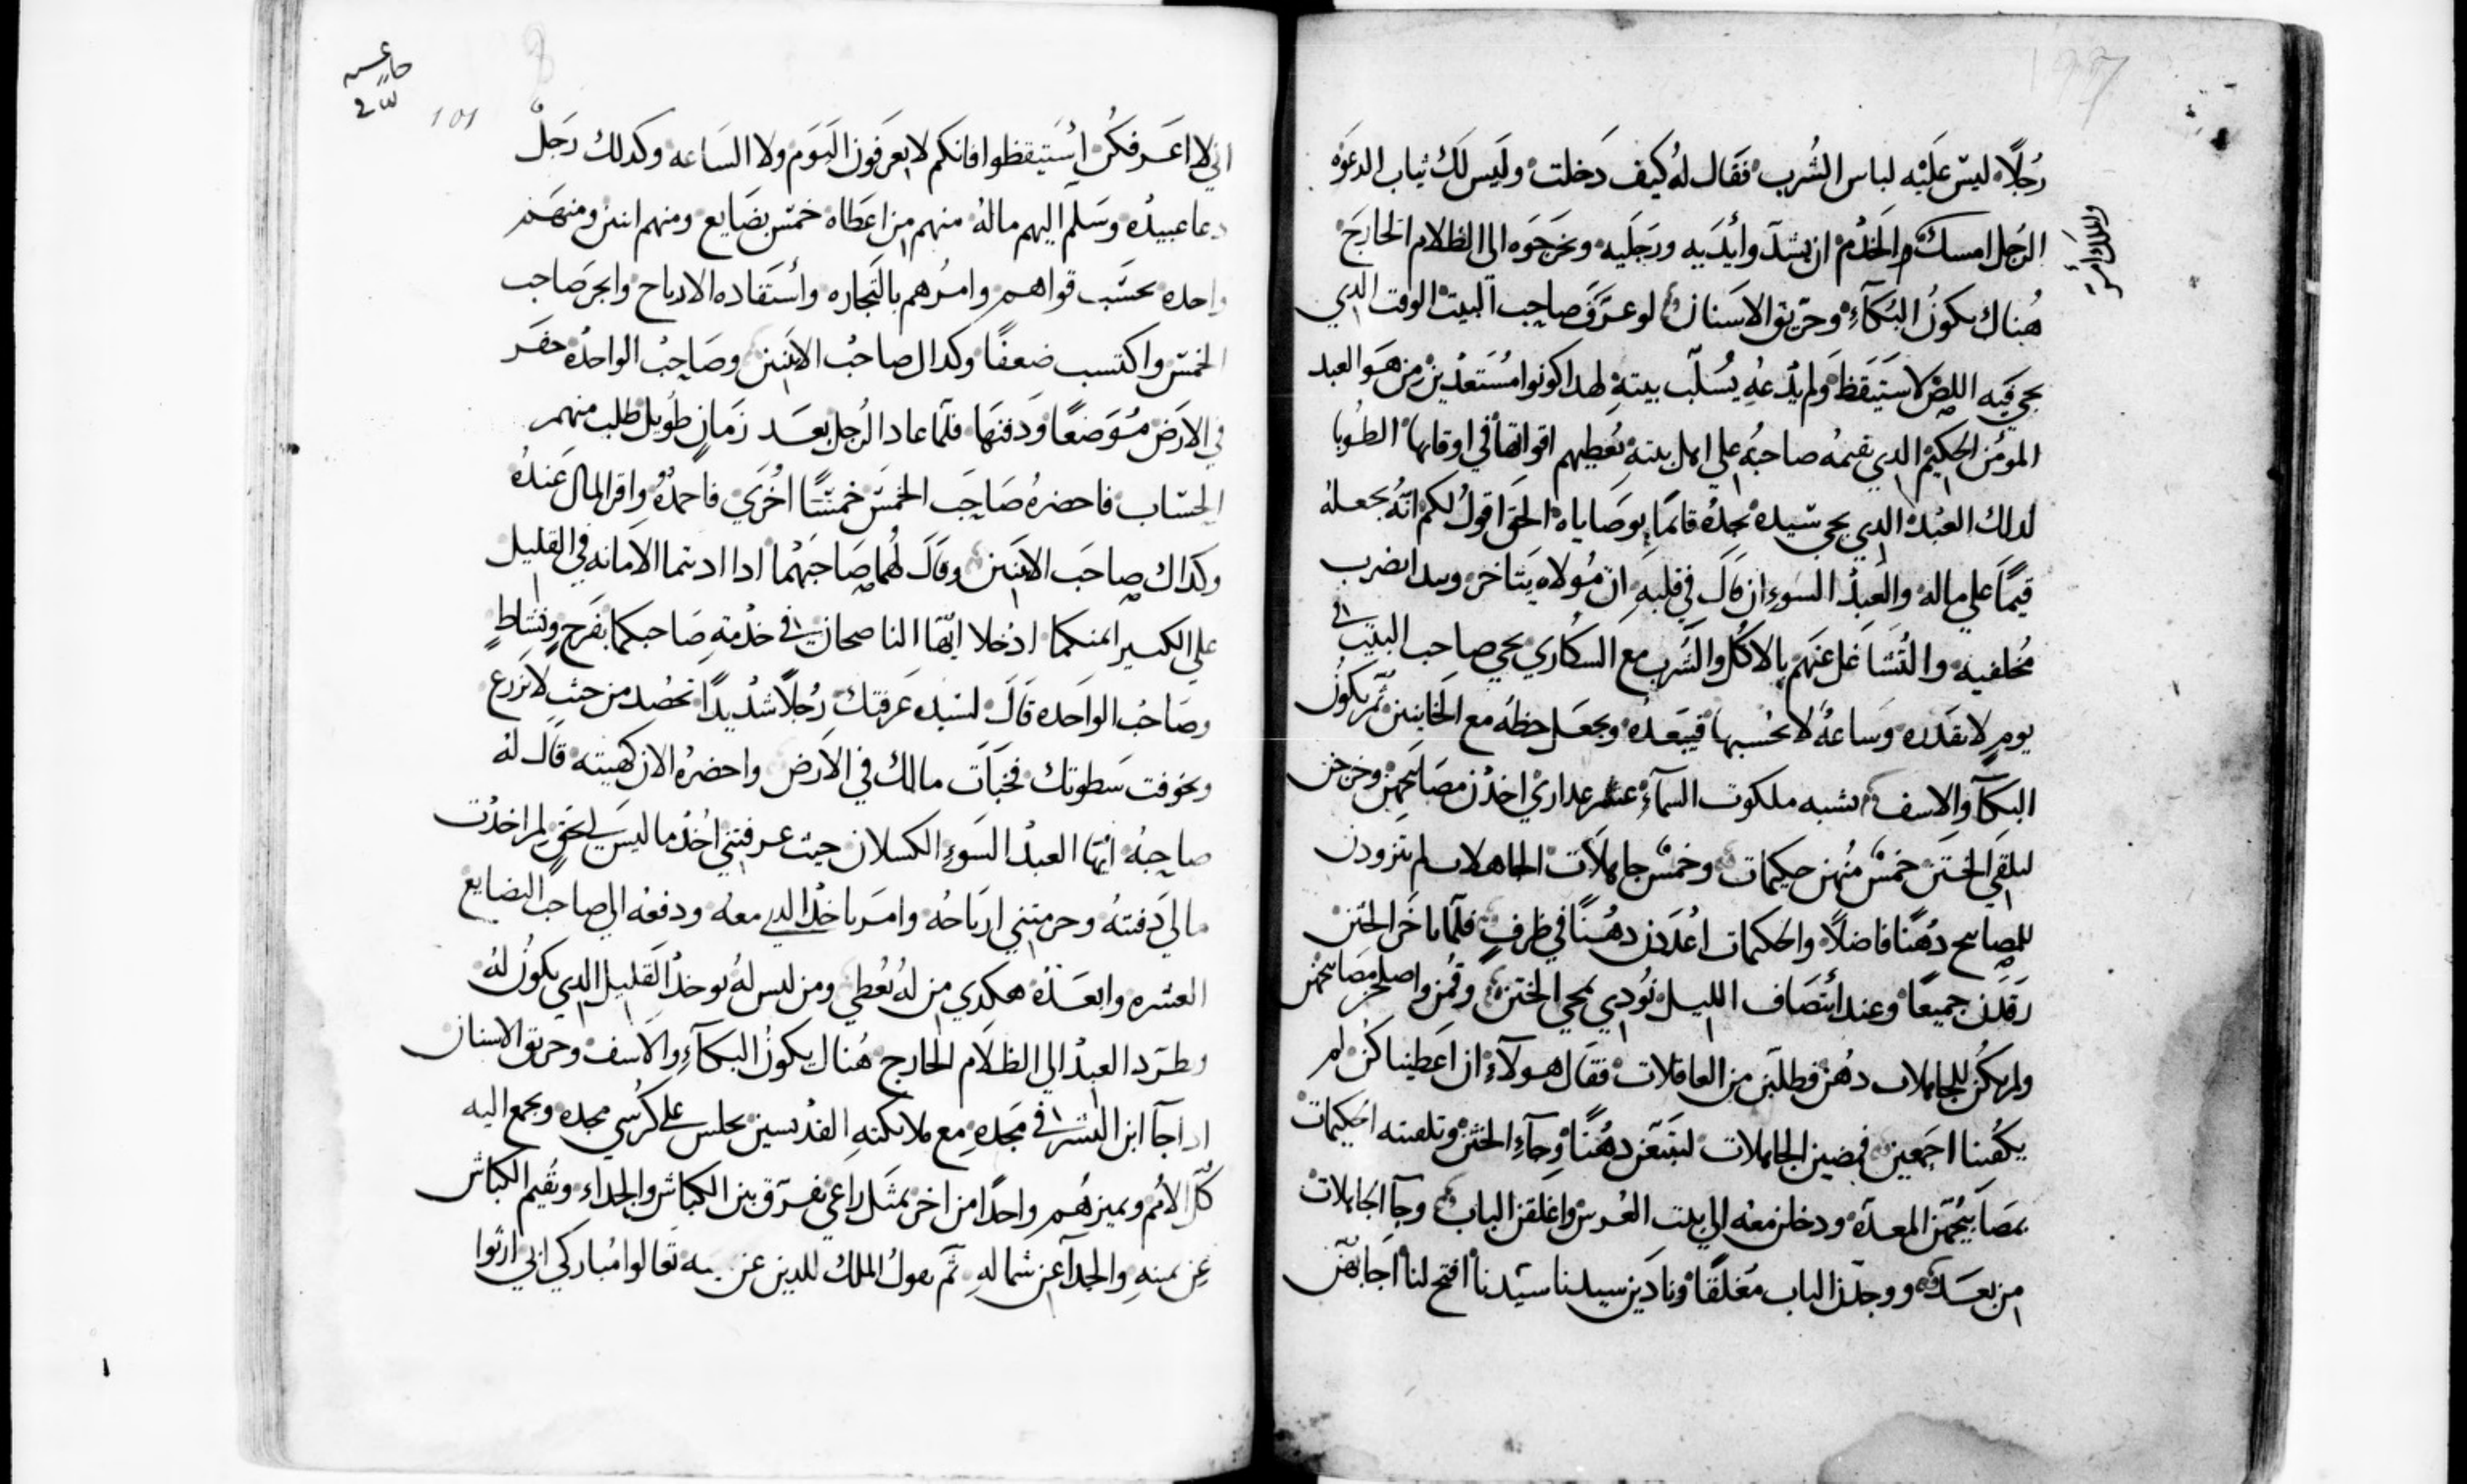 رجلًا ليس عليه لباس الشرب فقال له كيف دخلت وليس لك ثياب الدعوه
الرجل امسك والخدم ان يشدوا يديه ورجليه ونخرجوه الى الظلام الخارج
هناك يكون البكاء وحريق الاسنان لو عرف صاحب البيت الوقت الدي
يجي فيه اللص لاستيقظ ولم يدعه يسلب بيته لهدا كونوا مستعدين من هو العبد
المومن الحكيم الدي يقيمه صاحبه علي اهل بيته يعطيهم اقواتها في اوقاتها الطوبا
لدلك العبد الدي يجي سيده يجده قايما بوصاياه الحق اقول لكم انه يجعله
قيمًا علي ماله والعبد السوء ان قال في قلبه ان مولاه يتاخر ويبدا يضرب
مخلفيه والتشاغل عنهم بالاكل والشرب مع السكاري يجي صاحب البيت في
يوم لا يقدره وساعه لا يحسبها فيبعده ويجعل حظه مع الخاينين ثم يكون
البكآ والاسف تشبه ملكوت السمآء عشر عداري اخدن مصابيحهن وخرجن
للقي الختن خمس منهن حكيمات وخمس جاهلات الجاهلات لم يتزودن
للمصابيح دهنًا فاضلًا والحكيمات اعددن دهنًا في ظرف فلما تاخر الختن
رقدن جميعًا وعند انتصاف الليل نودي بمجي الختن وقمن واصلحن مصابيحهن
ولم يكن للجاهلات دهن فطلبن من العاقلات فقال هولآء ان اعطيناكن لم
يكفينا اجمعين فمضين الجاهلات ليبتعن دهنًا وجآء الختن وتلقيته الحكيمات
بمصابيحهن المعده ودخلن معه الي بيت العرس واغلقن الباب وجآ الجاهلات
من بعده ووجدن الباب مغلقًا ونادين سيدنا سيدنا افتح لنا اجابهن
101
اني لا اعرفكن استيقظوا فانكم لا تعرفون اليوم ولا الساعه وكدلك رجل
دعا عبيده وسلم اليهم ماله منهم من اعطاه خمس بضايع ومنهم اثنين ومنهم
واحده بحسب قواهم وامرهم بالتجاره واستفاده الارباح واتجر صاحب
الخمس واكتسب ضعفًا وكداك صاحب الاثنين وصاحب الواحده حفر
في الارض موضعًا ودفنها فلما عاد الرجل بعد زمان طويل طلب منهم
الحساب فاحضره صاحب الخمس خمسًا اخري فاحمده واقر المال عنده
وكداك صاحب الاثنين وقال لهما صاحبهما ادا اديتما الامانه في القليل
علي الكثير امنكما ادخلا ايها الناصحان في خدمة صاحبكما بفرح ونشاط
وصاحب الواحده قال لسيده عرفتك رجلًا شديدًا تحصد من حيث لا تزرع
وتخوفت سطوتك فخبات مالك في الارض واحضره الان كهيته قال له
صاحبه ايها العبد السوء الكسلان حيث عرفتني اخد ما ليس لي بحق لم اخدت
مالي دفنته وحرمتني ارباحه وامر باخد الدي معه ودفعه الي صاحب البضايع
العشره وابعده هكدي من له يعطي ومن ليس له يوخد القليل الدي يكون له
وطرد العبد الي الظلام الخارج هناك يكون البكآء والاسف وحريق الاسنان
ادا جآ ابن البشر في مجده مع ملايكته القديسين يجلس علي كرسي مجده ويجمع اليه
كل الامم ويميزهم واحدًا من اخر بمثل راعي يفرق بين الكباش والجداء ويقيم الكباش
عن يمينه والجدآ عن شماله ثم يقول الملك للدين عن يمينه تعالوا مباركي ابي ارثوا